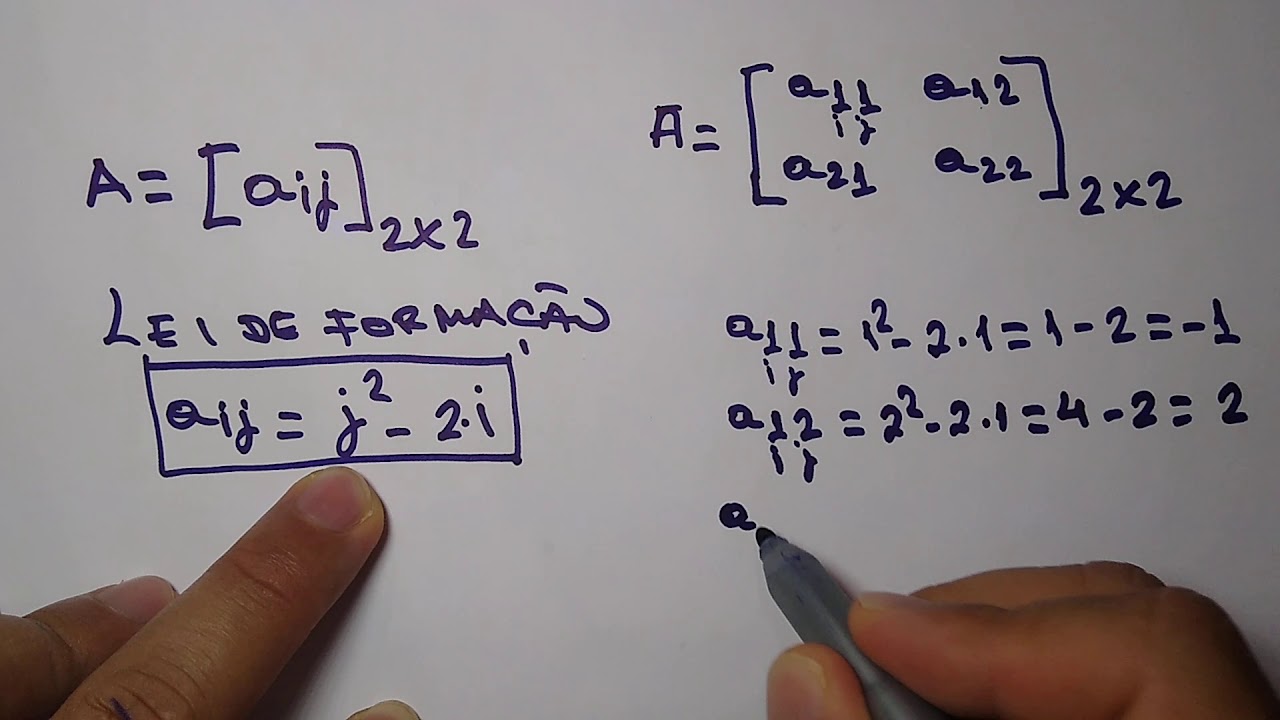 A = [aij]2x2
LEI DE FORMAÇÃO
aij = j² - 2.i
A = [a11 a12
a21 a22]2x2
i j
a11 = 1² - 2.1 = 1 - 2 = -1
i j
a12 = 2² - 2.1 = 4 - 2 = 2
i j
a